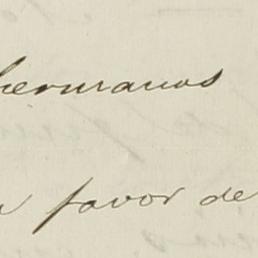 hermanos
a favor de